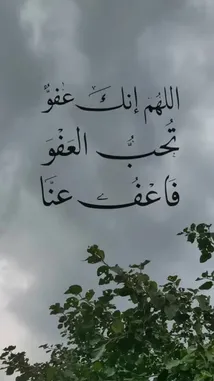 اللهم إنك عفوٌّ
تُحبُّ العَفْوَ
فَاعْفُ عنَا